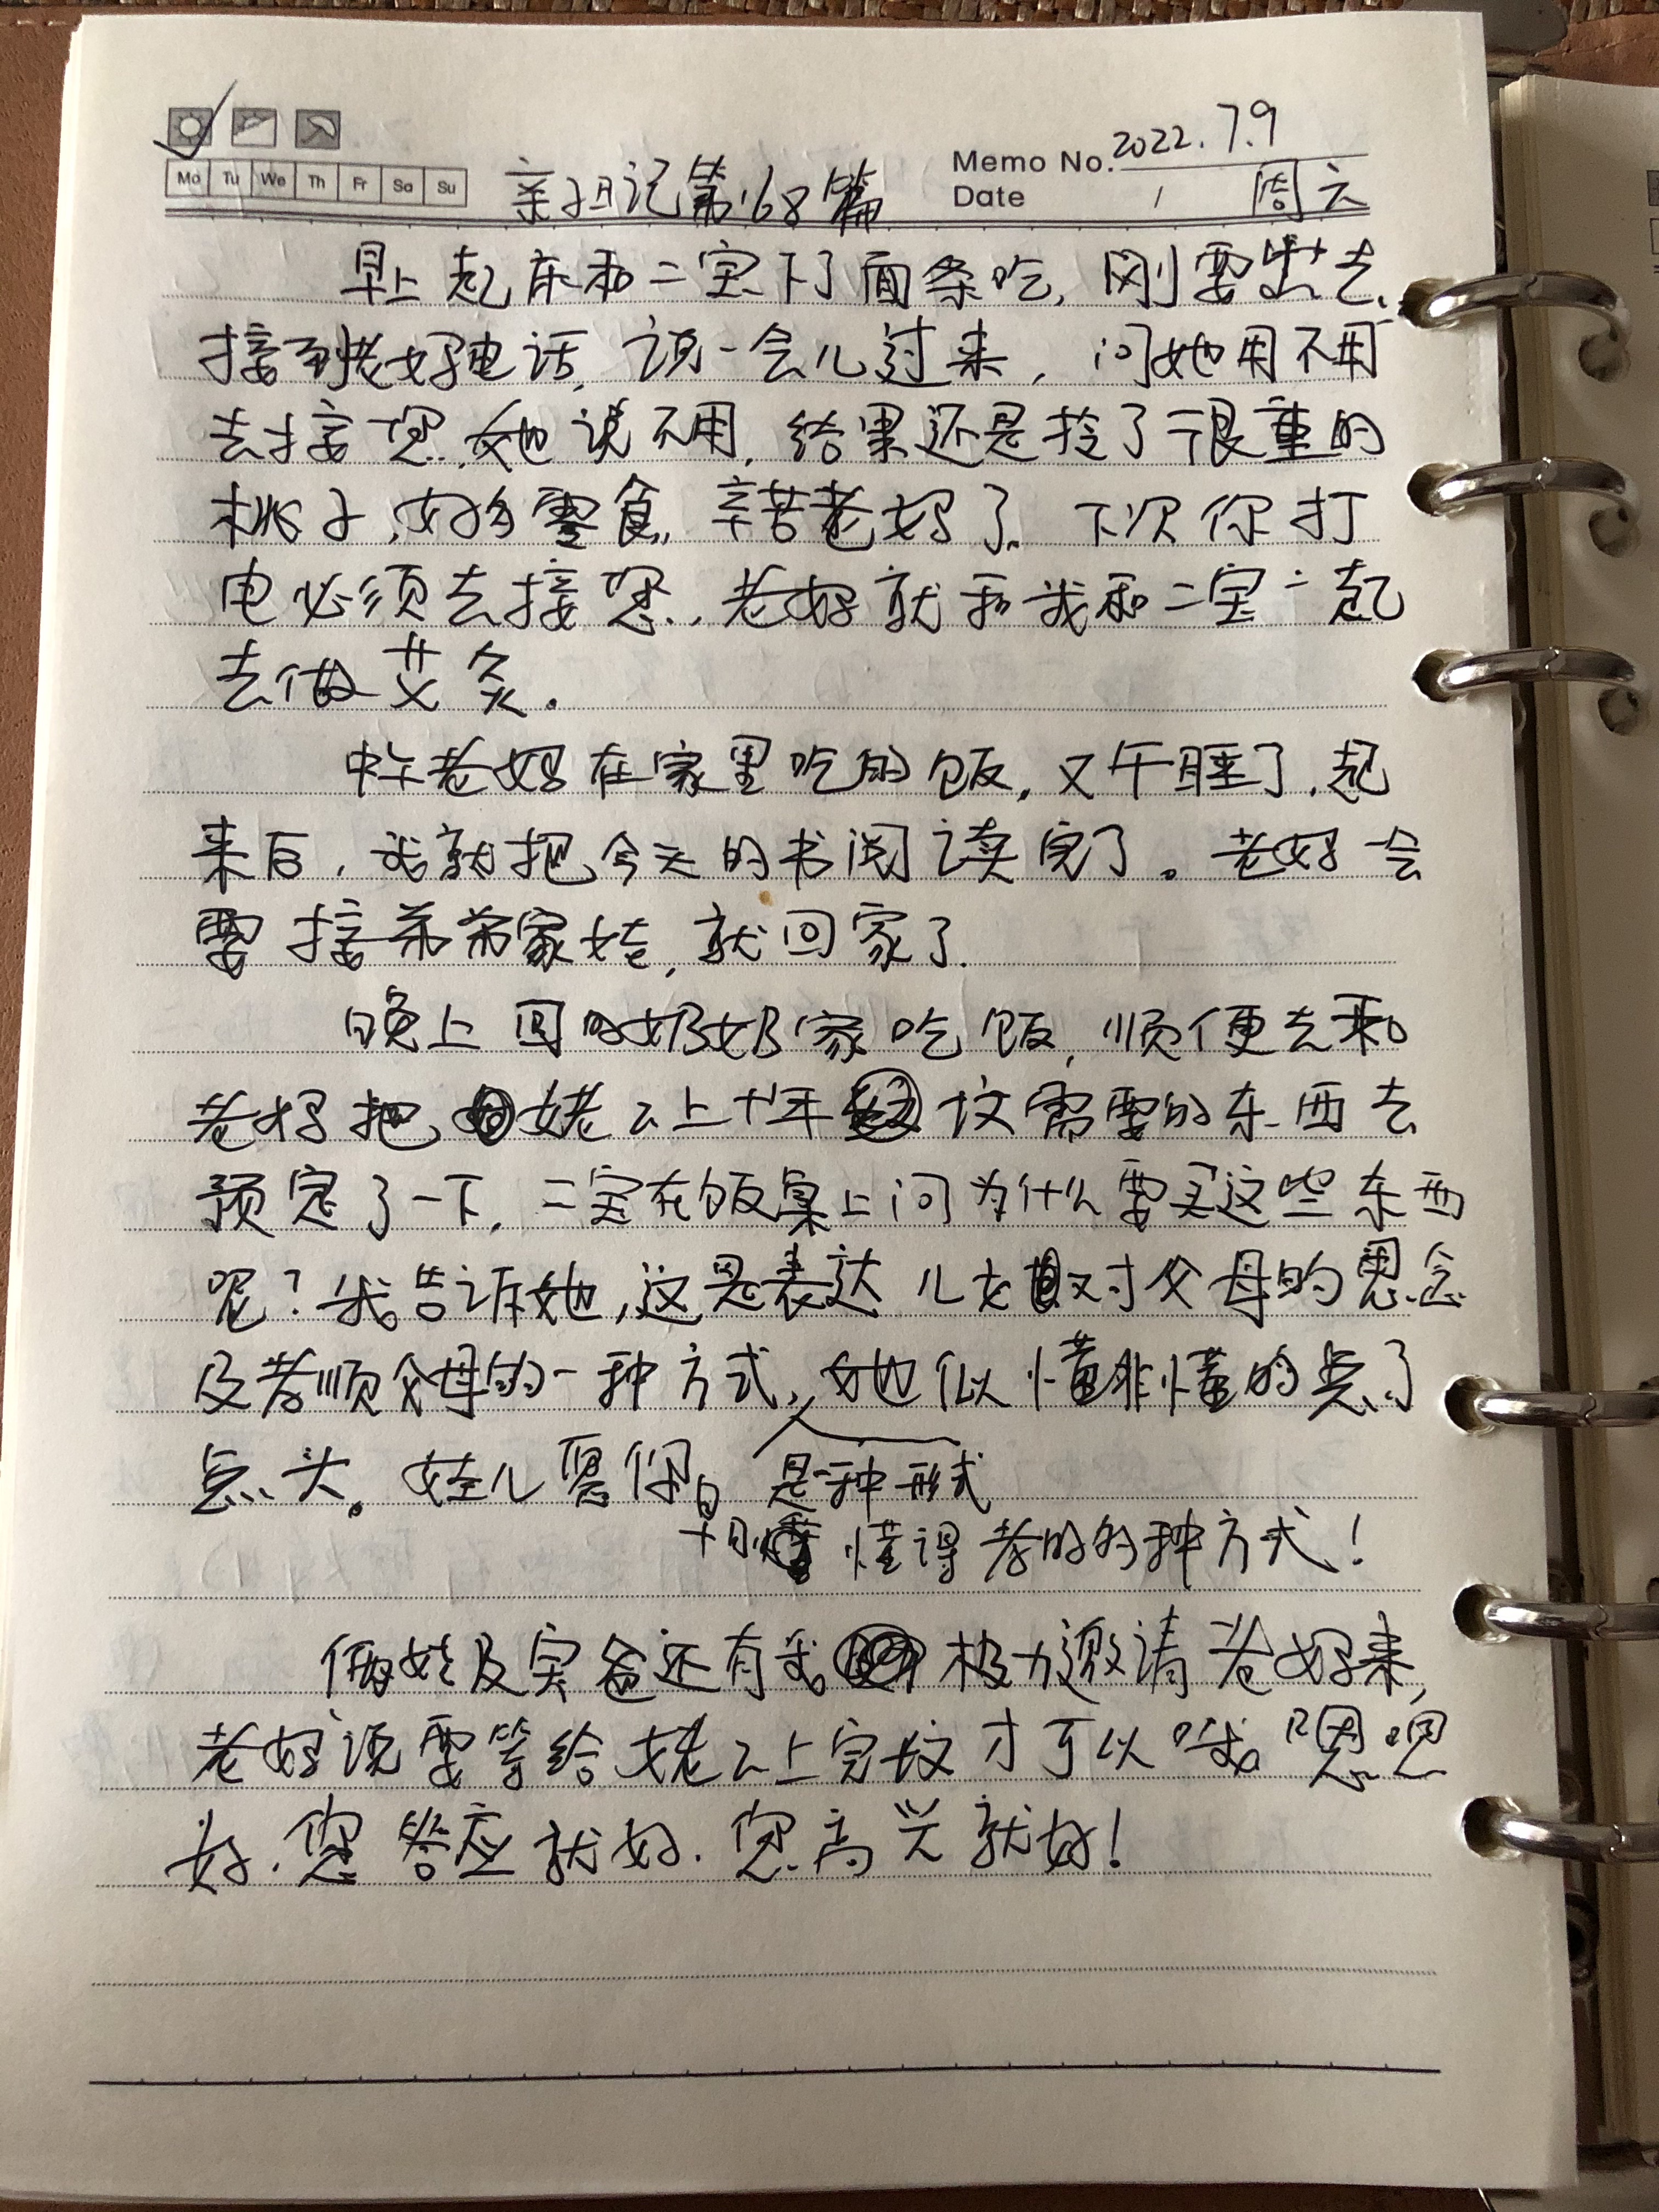 2022.7.9
Memo No.
Mo Tu We Th Fr Sa Su
亲子日记第168篇
Date / 周六
早上起床和二宝下了面条吃,刚要出去,
接到老妈电话,说一会儿过来,问她用不用
去接您,她说不用,结果还是拎了很重的
桃子,好多零食,辛苦老妈了。下次你打
电必须去接您,老妈就和我和二宝一起
去做艾灸。
中午老妈在家里吃的饭,又午睡了,起
来后,我就把今天的书阅读完了。老妈一会
要接弟弟家娃,就回家了.
晚上回奶奶家吃饭,顺便去和
老妈把姥么上十年坟需要的东西去
预定了一下,二宝在饭桌上问为什么要买这些东西
呢?我告诉她,这是表达儿女对父母的思念
及孝顺父母的一种方式,她似懂非懂的点了
点头。娃儿愿你 是一种形式
懂得孝的多种方式!
俩娃及宝爸还有我极力邀请老妈来,
老妈说要等给姥么上完坟才可以哦。嗯嗯
好.您答应就好.您高兴就好!